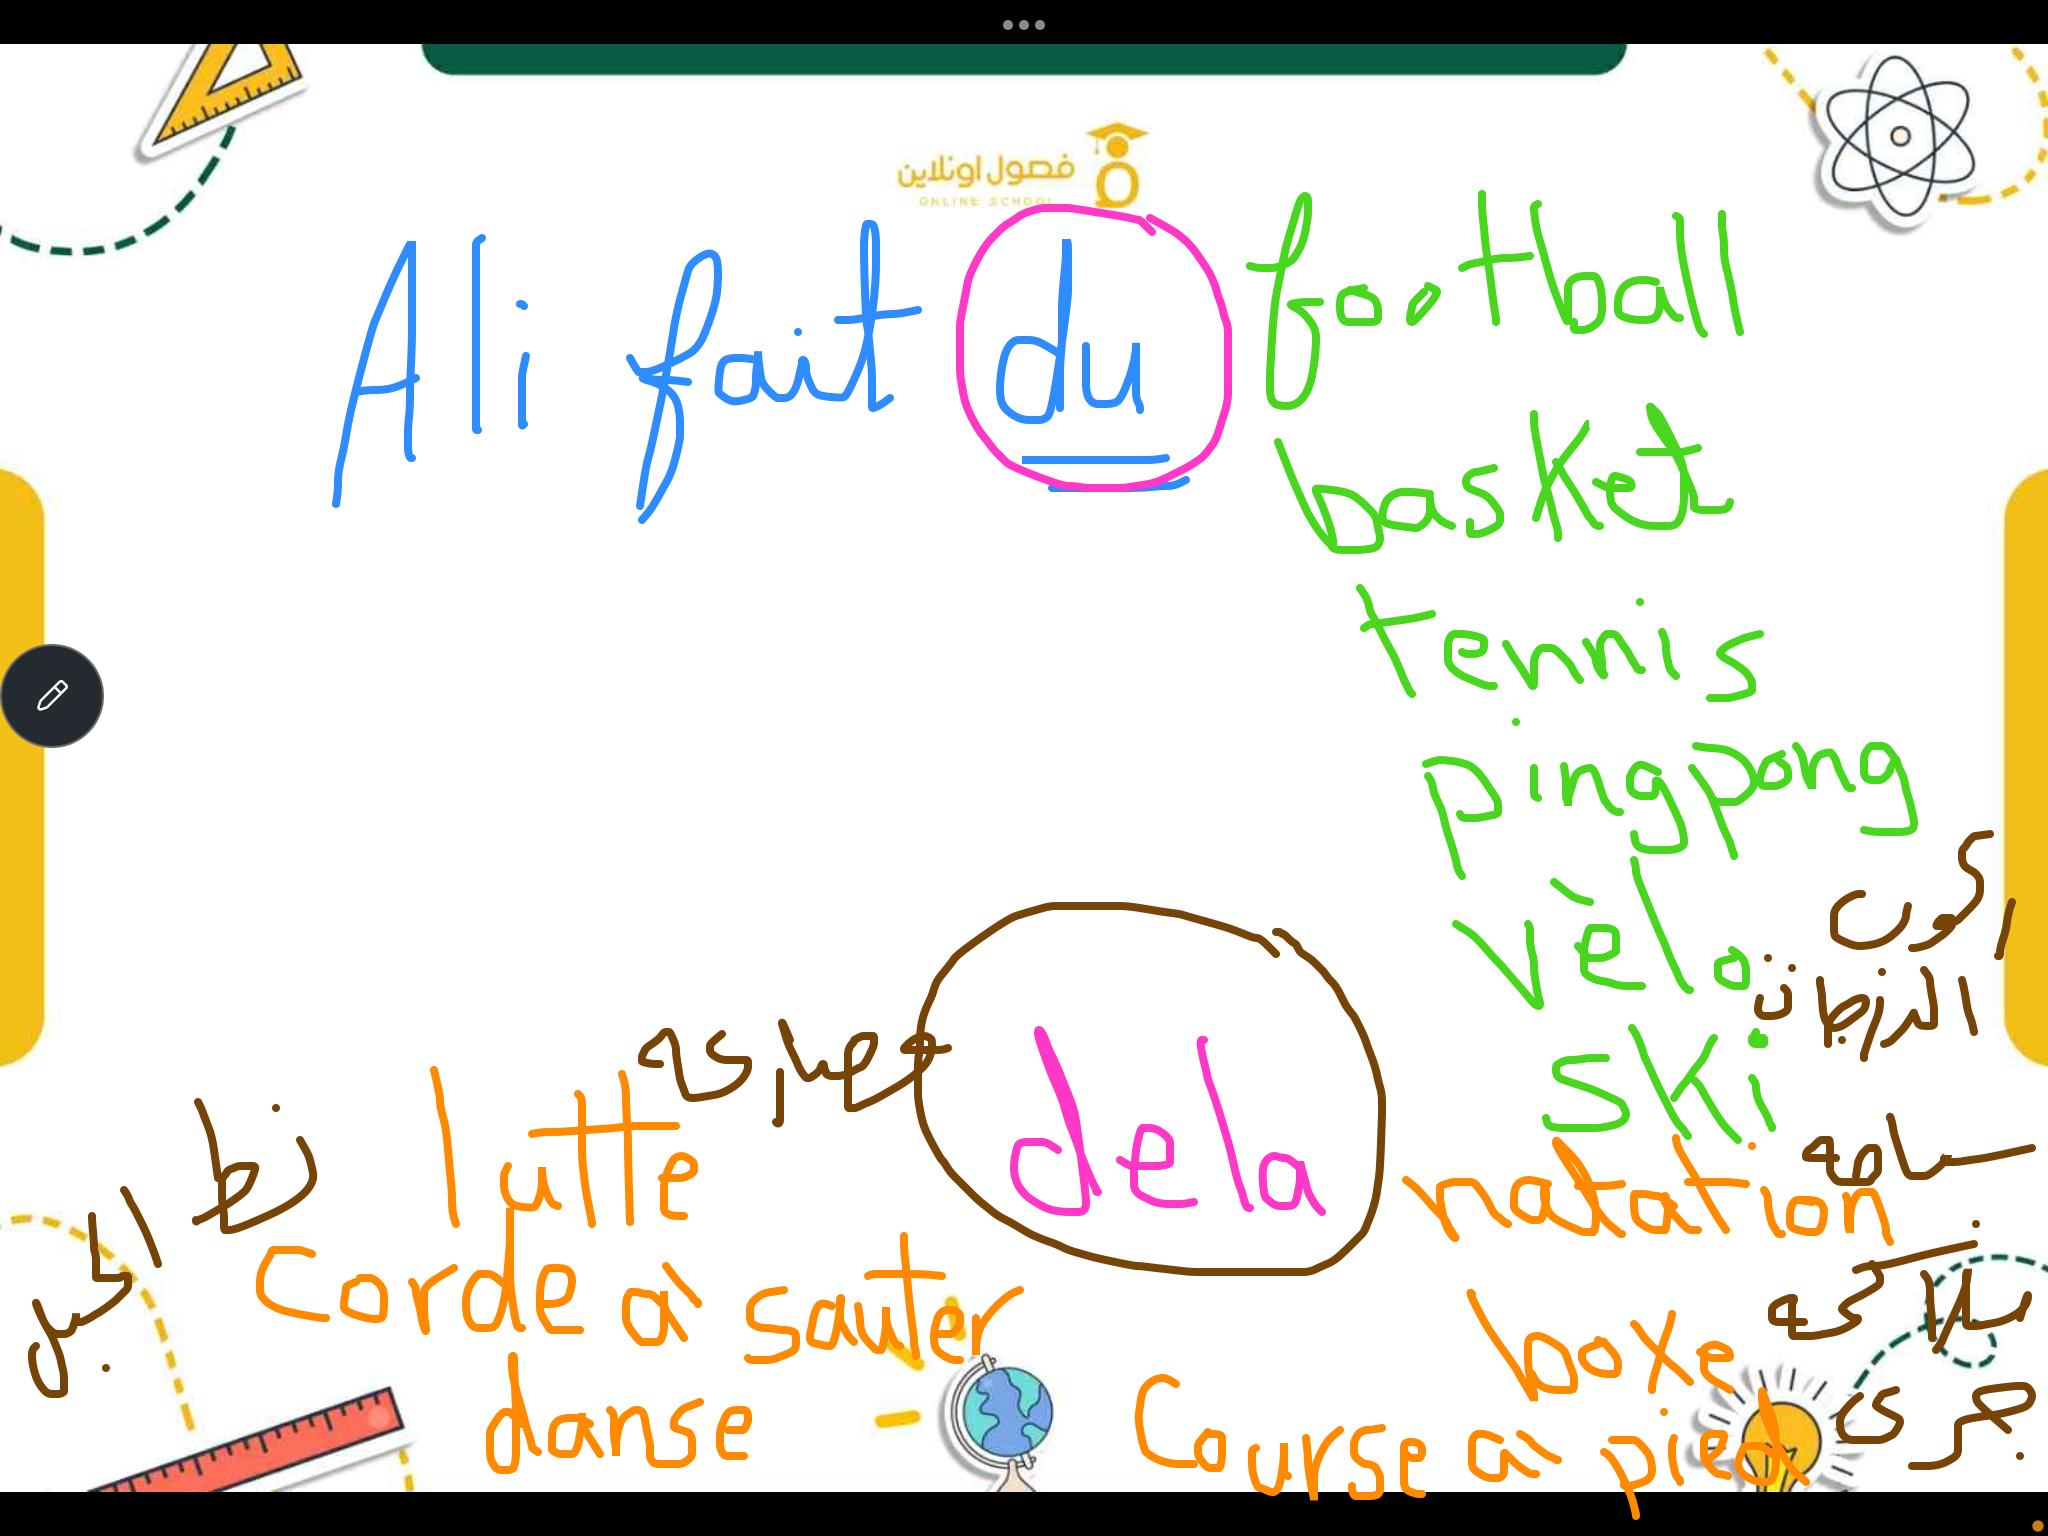 فصول اونلاين
ONLINE SCHOOL
Ali fait du football
basket
tennis
pingpong
vèlo ركوب
ski التزلج
dela
natation سباحه
boxe ملاكمه
Course à pied جرى
lutte مصارعه
Corde à sauter نط الحبل
danse